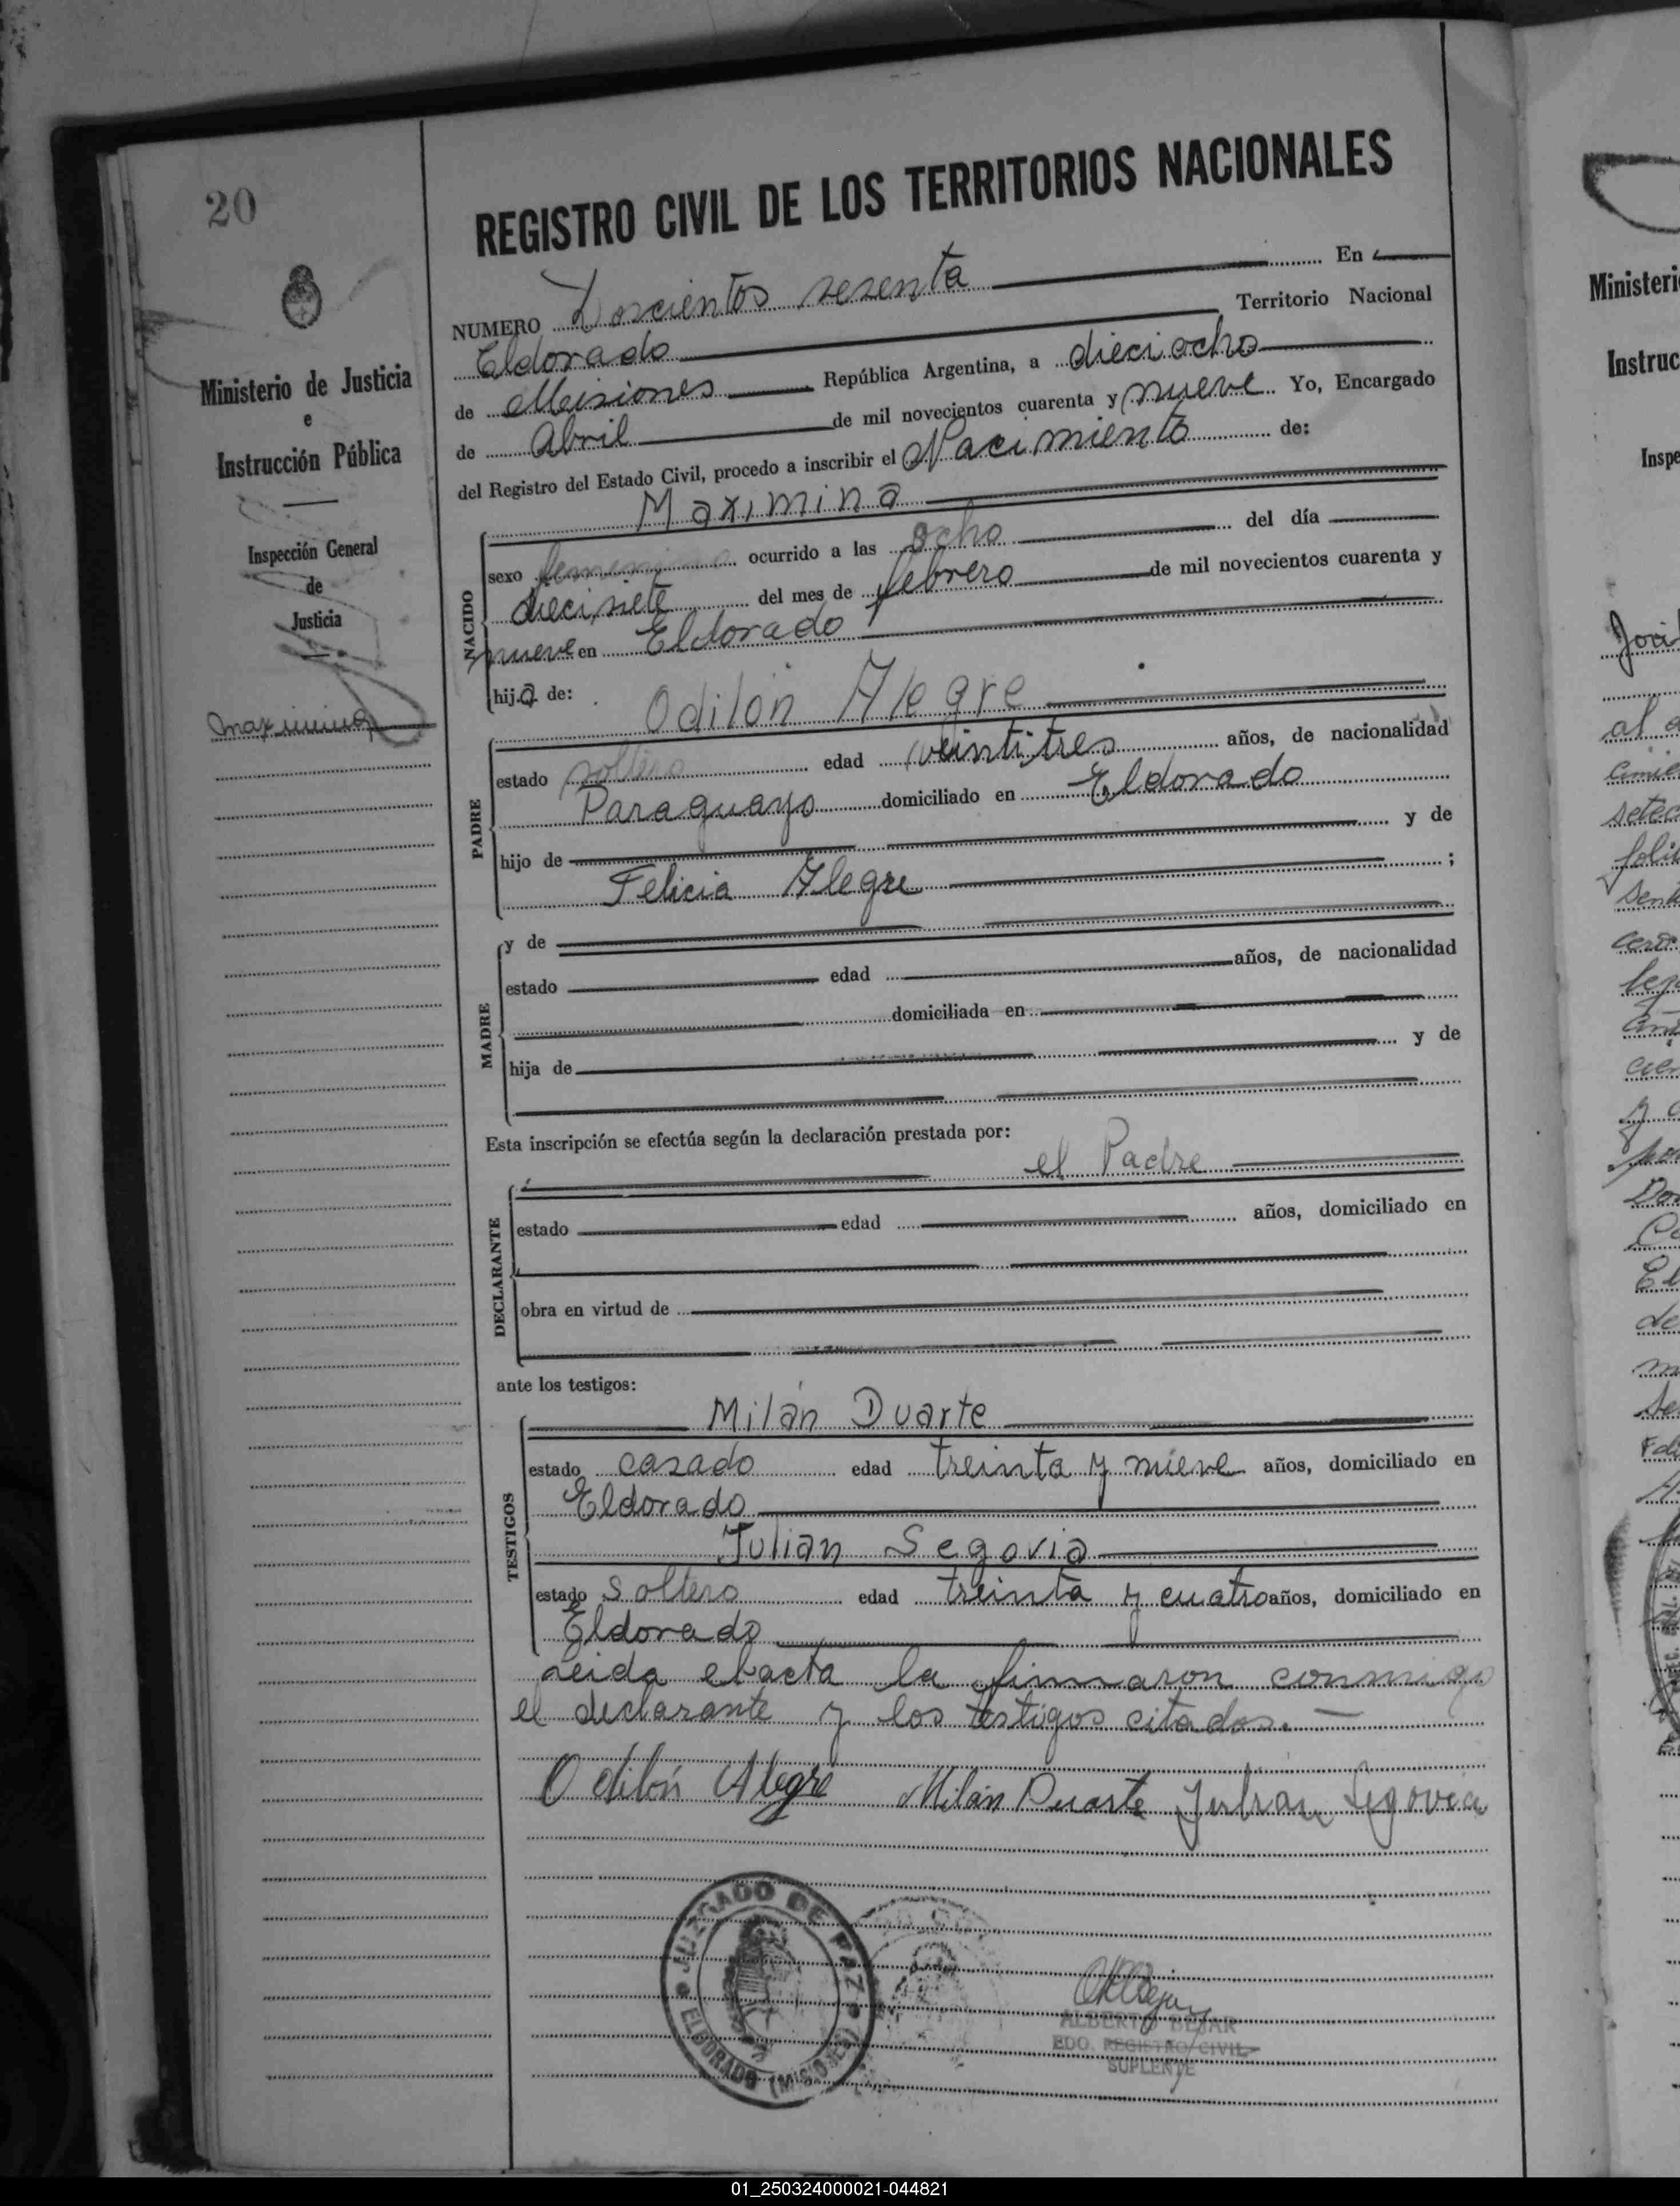 20
Ministerio de Justicia
e
Instrucción Pública
Inspección General
de
Justicia
Maximina
REGISTRO CIVIL DE LOS TERRITORIOS NACIONALES
NUMERO Doscientos sesenta En
Eldorado Territorio Nacional
de Misiones República Argentina, a dieciocho
de Abril de mil novecientos cuarenta y nueve Yo, Encargado
del Registro del Estado Civil, procedo a inscribir el Nacimiento de:
NACIDO
Maximina
sexo femenino ocurrido a las ocho del día
diecisiete del mes de febrero de mil novecientos cuarenta y
nueve en Eldorado
hija de:
PADRE
Odilón Alegre
estado soltero edad veintitres años, de nacionalidad
Paraguayo domiciliado en Eldorado
hijo de y de
Felicia Alegre ;
MADRE
y de
estado edad años, de nacionalidad
domiciliada en
hija de y de
Esta inscripción se efectúa según la declaración prestada por:
DECLARANTE
el Padre
estado edad años, domiciliado en
obra en virtud de
ante los testigos:
TESTIGOS
Milán Duarte
estado casado edad treinta y nueve años, domiciliado en
Eldorado
Julian Segovia
estado soltero edad treinta y cuatro años, domiciliado en
Eldorado
Leida el acta la firmaron conmigo
el declarante y los testigos citados.
Odilón Alegre Milán Duarte Julian Segovia
JUZGADO DE PAZ
ELDORADO (MISIONES)
ALBERTO BEJAR
EDO. REGISTRO CIVIL
SUPLENTE
Ministeri
Instruc
Inspe
01_250324000021-044821